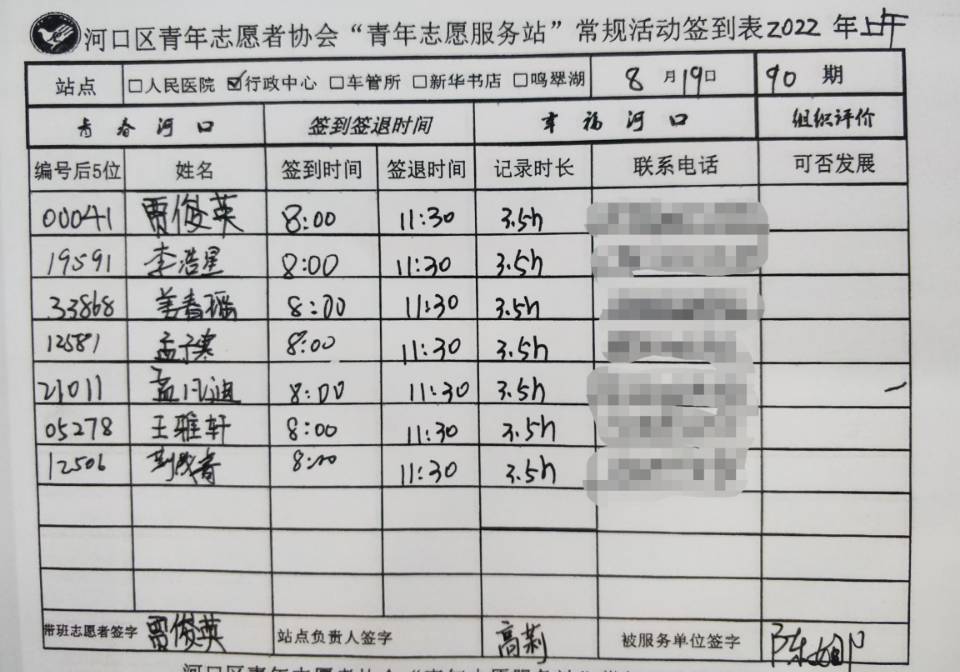 河口区青年志愿者协会“青年志愿服务站”常规活动签到表2022年上午
站点 □人民医院 ☑行政中心 □车管所 □新华书店 □鸣翠湖 8月19日 90期
青春河口 签到签退时间 幸福河口 组织评价
编号后5位 姓名 签到时间 签退时间 记录时长 联系电话 可否发展
00041 贾俊英 8:00 11:30 3.5h
19591 李浩星 8:00 11:30 3.5h
33868 姜春瑶 8:00 11:30 3.5h
12581 孟子寒 8:00 11:30 3.5h
21011 孟 8:00 11:30 3.5h
05278 王雅轩 8:00 11:30 3.5h
12506 8:00 11:30 3.5h
带班志愿者签字 贾俊英 站点负责人签字 高莉 被服务单位签字